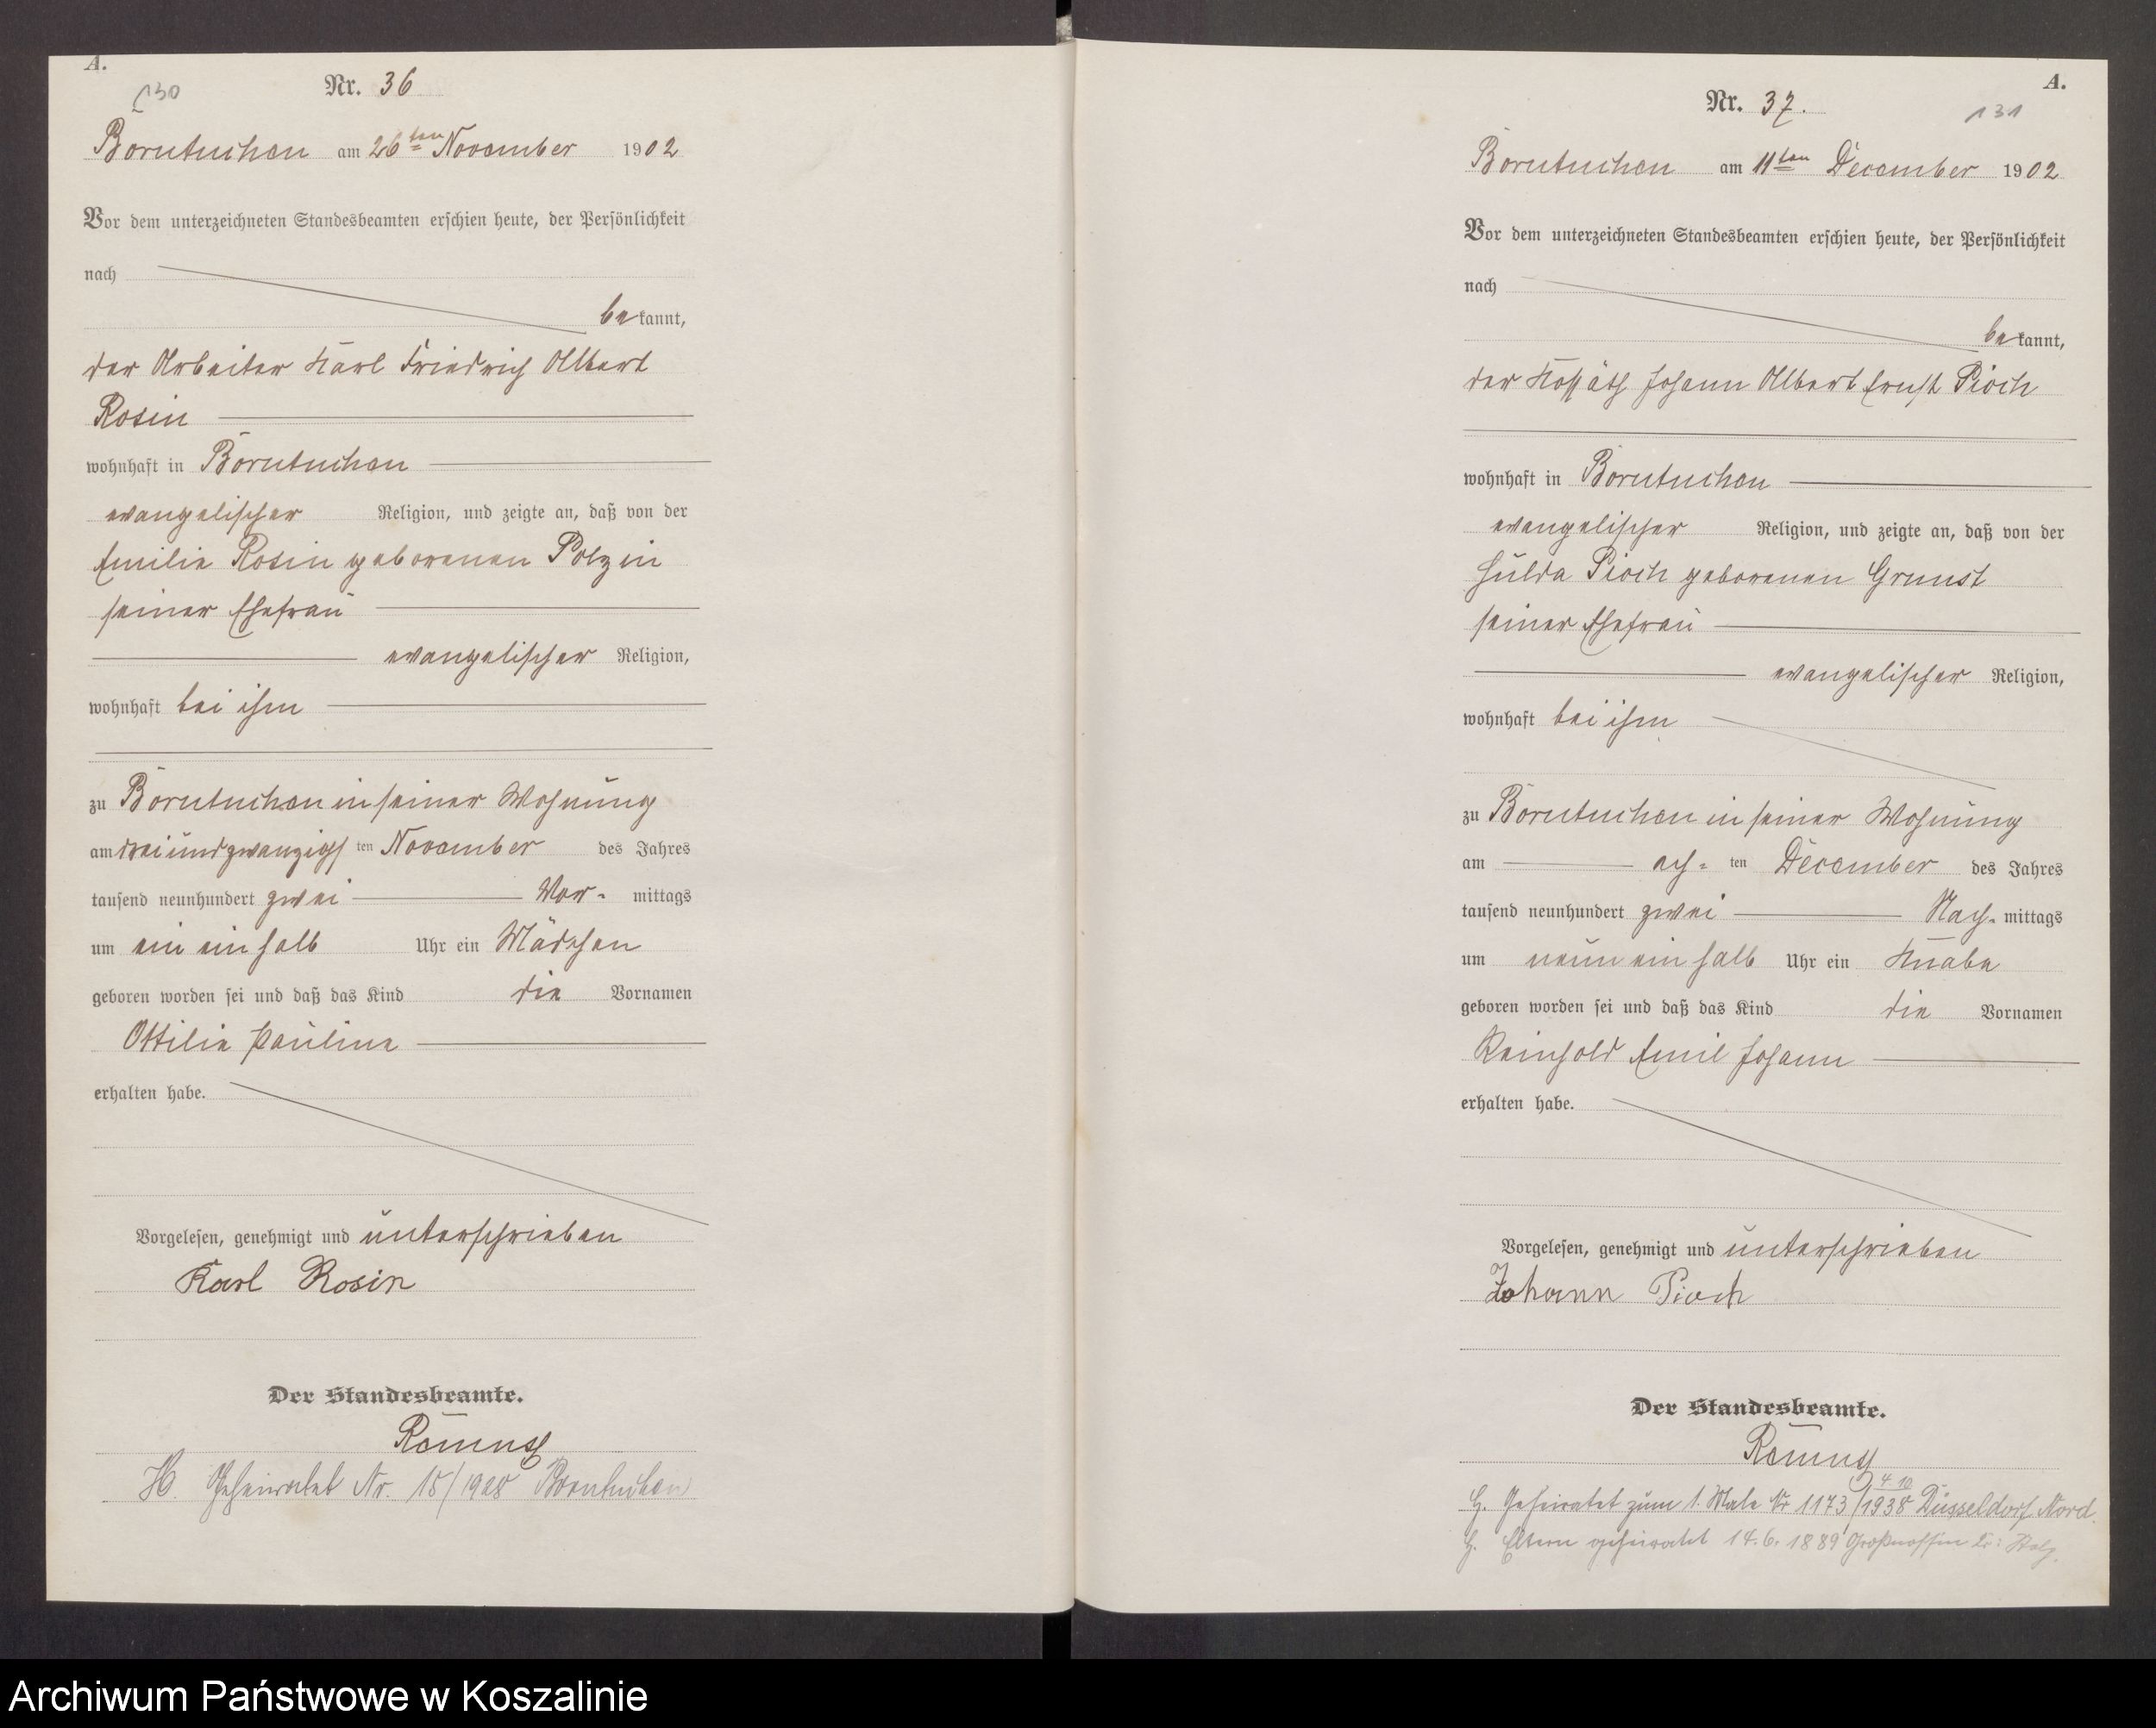 A.
130
Nr. 36
Borntuchen am 26ten November 1902
Vor dem unterzeichneten Standesbeamten erschien heute, der Persönlichkeit
nach
bekannt,
der Arbeiter Karl Friedrich Albert
Rosin
wohnhaft in Borntuchen
evangelischer Religion, und zeigte an, daß von der
Emilie Rosin geborenen Polzin
seiner Ehefrau
evangelischer Religion,
wohnhaft bei ihm
zu Borntuchen in seiner Wohnung
am dreiundzwanzigsten November des Jahres
tausend neunhundert zwei Vor- mittags
um ein ein halb Uhr ein Mädchen
geboren worden sei und daß das Kind die Vornamen
Ottilie Pauline
erhalten habe.
Vorgelesen, genehmigt und unterschrieben
Karl Rosin
Der Standesbeamte.
H. Geheiratet Nr. 15/1928 Borntuchen
A.
Nr. 37.
131
Borntuchen am 11ten December 1902
Vor dem unterzeichneten Standesbeamten erschien heute, der Persönlichkeit
nach
bekannt,
der Kossäth Johann Albert Ernst Pioch
wohnhaft in Borntuchen
evangelischer Religion, und zeigte an, daß von der
Hulda Pioch geborenen Grunst
seiner Ehefrau
evangelischer Religion,
wohnhaft bei ihm
zu Borntuchen in seiner Wohnung
am ach- ten December des Jahres
tausend neunhundert zwei Nach- mittags
um neun ein halb Uhr ein Knabe
geboren worden sei und daß das Kind die Vornamen
Reinhold Emil Johann
erhalten habe.
Vorgelesen, genehmigt und unterschrieben
Johann Pioch
Der Standesbeamte.
4.10
H. Geheiratet zum 1. Male Nr 1173/1938 Düsseldorf Nord.
H. Eltern geheiratet 14.6.1889 Großnossin Kr. Stolp.
Archiwum Państwowe w Koszalinie